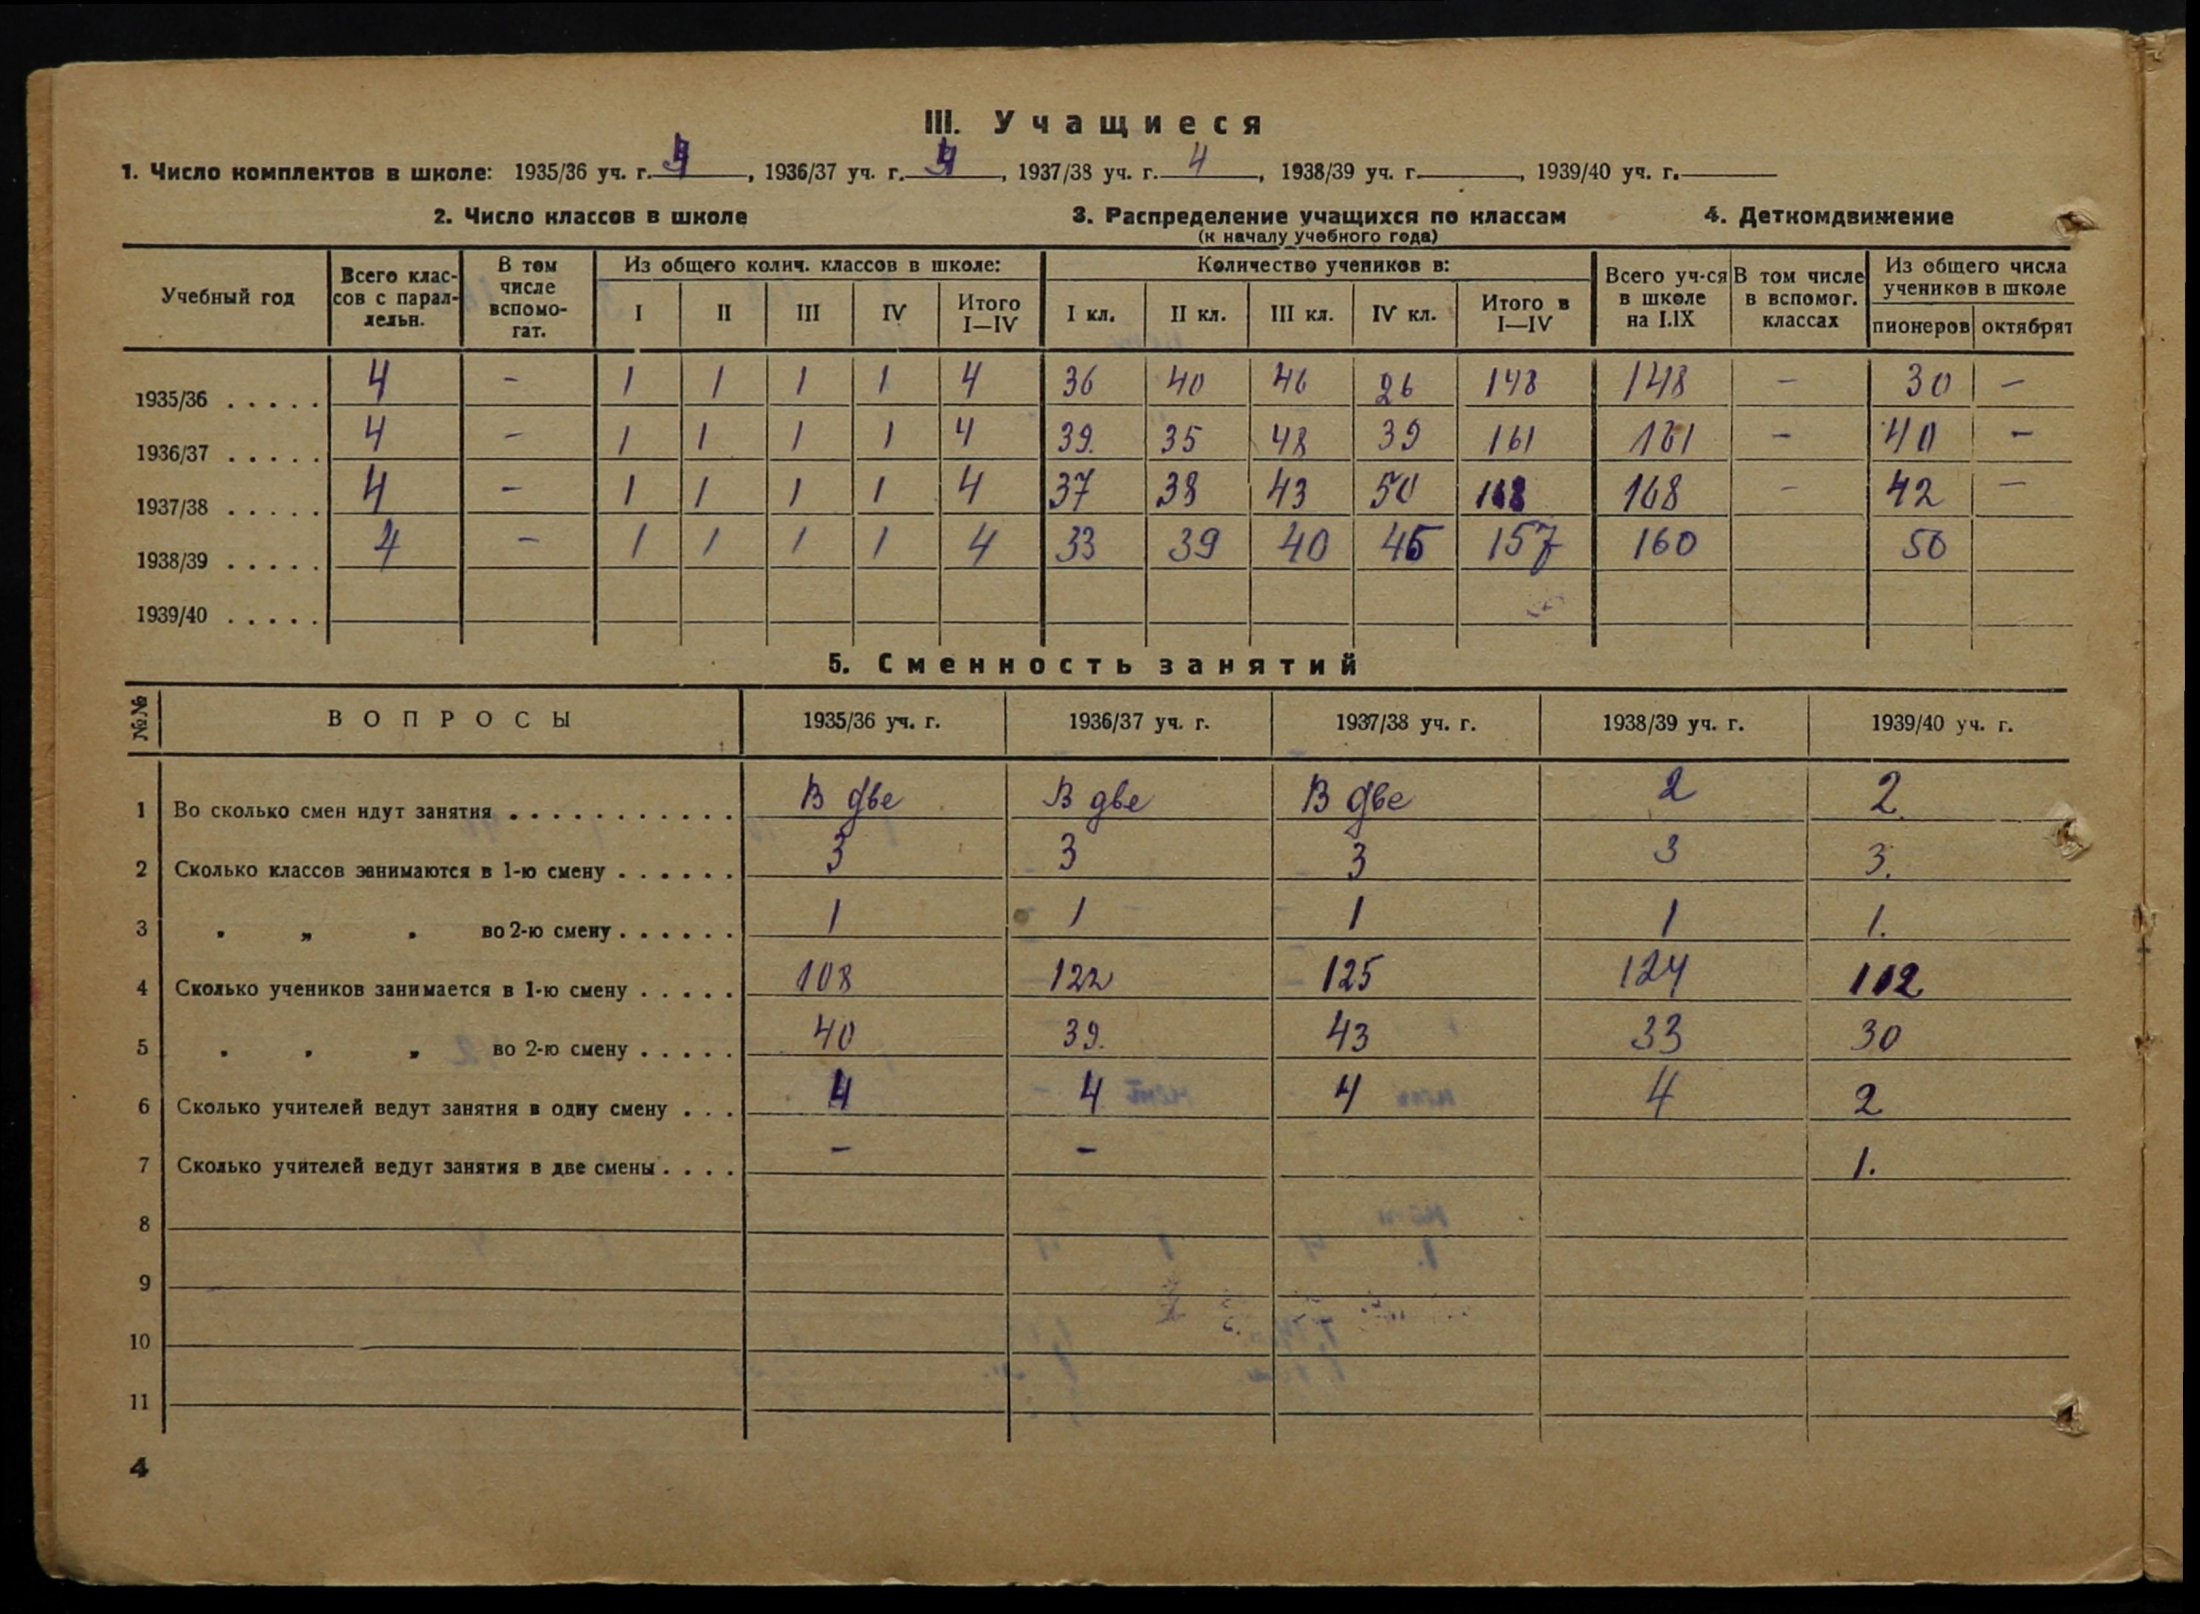 III. Учащиеся
1. Число комплектов в школе: 1935/36 уч. г. 4, 1936/37 уч. г. 4, 1937/38 уч. г. 4, 1938/39 уч. г. , 1939/40 уч. г.
2. Число классов в школе 3. Распределение учащихся по классам 4. Деткомдвижение
(к началу учебного года)
Учебный год Всего классов с параллельн. В том числе вспомогат. Из общего колич. классов в школе: Количество учеников в: Всего уч-ся в школе на I.IX В том числе в вспомог. классах Из общего числа учеников в школе
I II III IV Итого I—IV I кл. II кл. III кл. IV кл. Итого в I—IV пионеров октябрят
1935/36 . . . . . 4 – 1 1 1 1 4 36 40 46 26 148 148 – 30 –
1936/37 . . . . . 4 – 1 1 1 1 4 39. 35 48 39 161 161 – 40 –
1937/38 . . . . . 4 – 1 1 1 1 4 37 38 43 50 168 168 – 42 –
1938/39 . . . . . 4 – 1 1 1 1 4 33 39 40 45 157 160 50
1939/40 . . . . .
5. Сменность занятий
№№ ВОПРОСЫ 1935/36 уч. г. 1936/37 уч. г. 1937/38 уч. г. 1938/39 уч. г. 1939/40 уч. г.
1 Во сколько смен идут занятия . . . . . . . . . . . В две В две В две 2 2.
2 Сколько классов занимаются в 1-ю смену . . . . . . 3 3 3 3 3.
3 „ „ „ во 2-ю смену . . . . . . 1 1 1 1 1.
4 Сколько учеников занимается в 1-ю смену . . . . . 108 122 125 124 112
5 „ „ „ во 2-ю смену . . . . . 40 39. 43 33 30
6 Сколько учителей ведут занятия в одну смену . . . 4 4 4 4 2
7 Сколько учителей ведут занятия в две смены . . . . – – 1.
8
9
10
11
4